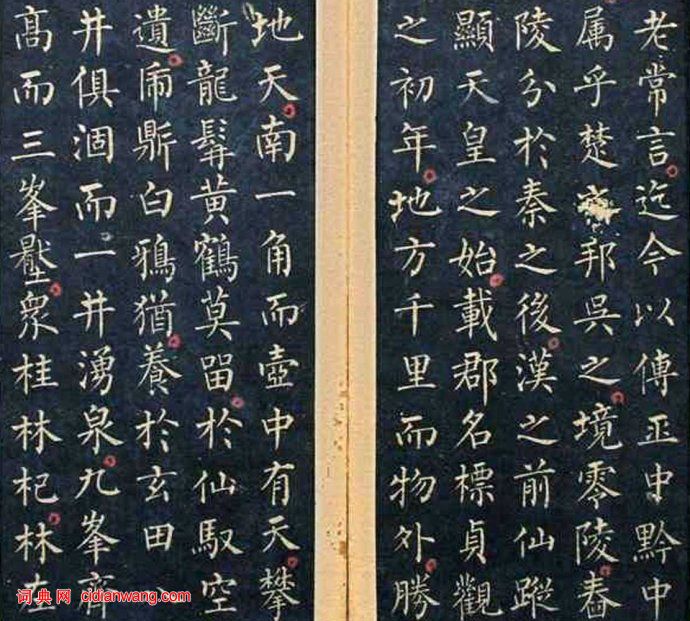 老常言迄今以傳中黔中
属乎楚邦吳之境零陵舂
陵分於秦之後漢之前仙蹤
顯天皇之始載郡名標貞觀
之初年地方千里而物外勝
地天南一角而壺中有天攀
斷龍髯黄鶴莫留於仙馭空
遺鼎白鴉猶養於玄田八
井俱涸而一井湧泉九峯齊
髙而三峯壓衆桂林杞林
词典网 cidianwang.com